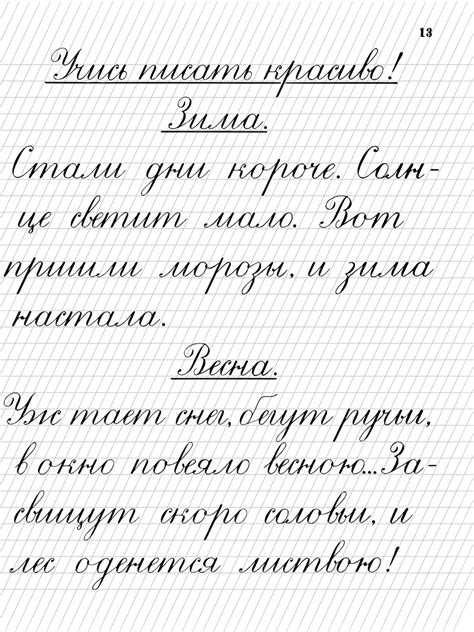 13
Учись писать красиво!
Зима.
Стали дни короче. Солн-
це светит мало. Вот
пришли морозы, и зима
настала.
Весна.
Уж тает снег, бегут ручьи,
в окно повеяло весною... За-
свищут скоро соловьи, и
лес оденется листвою!